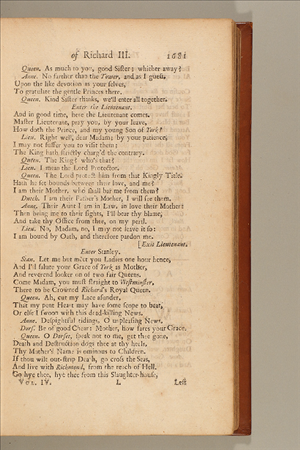 of Richard III. 1681
Queen. As much to you, good Sister; whither away?
Anne. No farther than the Tower, and as I guess,
Upon the like devotion as your selves,
To gratulate the gentle Princes there.
Queen. Kind Sister thanks, we'll enter all together.
Enter the Lieutenant.
And in good time, here the Lieutenant comes.
Master Lieutenant, pray you, by your leave,
How doth the Prince, and my young Son of York?
Lieu. Right well, dear Madam; by your patience,
I may not suffer you to visit them;
The King hath strictly charg'd the contrary.
Queen. The King? who's that?
Lieu. I mean the Lord Protector.
Queen. The Lord protect him from that Kingly Title.
Hath he set bounds between their love, and me?
I am their Mother, who shall bar me from them?
Dutch. I am their Father's Mother, I will see them.
Anne. Their Aunt I am in Law, in love their Mother:
Then bring me to their sights, I'll bear thy blame,
And take thy Office from thee, on my peril.
Lieu. No, Madam, no, I may not leave it so:
I am bound by Oath, and therefore pardon me.
[Exit Lieutenant.
Enter Stanley.
Stan. Let me but meet you Ladies one hour hence,
And I'll salute your Grace of York as Mother,
And reverend looker on of two fair Queens.
Come Madam, you must straight to Westminster,
There to be Crowned Richard's Royal Queen.
Queen. Ah, cut my Lace asunder,
That my pent Heart may have some scope to beat,
Or else I swoon with this dead-killing News.
Anne. Despightful tidings, O unpleasing News.
Dors. Be of good Chear: Mother, how fares your Grace.
Queen. O Dorset, speak not to me, get thee gone,
Death and Destruction dogs thee at thy heels,
Thy Mother's Name is ominous to Children.
If thou wilt out-strip Death, go cross the Seas,
And live with Richmond, from the reach of Hell.
Go hye thee, hye thee from this Slaughter-house,
Vol. IV. L Lest